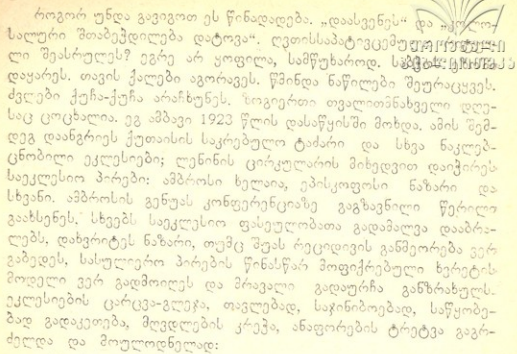 როგორ უნდა გავიგოთ ეს წინადადება. „დაასვენეს“ და „კოლო-
სალური შთაბეჭდილება დატოვა“. ღვთისსაპატივცემუ
ლი შეასრულეს? ეგრე არ ყოფილა, სამწუხაროდ.
დაყარეს. თავის ქალები აგორავეს. წმინდა ნაწილები შეურაცყვეს.
ძვლები ქუჩა-ქუჩა არაჩხუნეს. ზოგიერთი თვალითმნახველი დღე-
საც ცოცხალია. ეგ ამბავი 1923 წლის დასაწყისში მოხდა. ამის შემ-
დეგ დაანგრიეს ქუთაისის საკრებულო ტაძარი და სხვა ნაკლებ-
ცნობილი ეკლესიები; ლენინის ცირკულარის მიხედვით დაიჭირეს
საეკლესიო პირები: ამბროსი ხელაია, ეპისკოფოსი ნაზარი და
სხვანი. ამბროსის გენუას კონფერენციაზე გაგზავნილი წერილი
გაახსენეს. სხვებს საეკლესიო ფასეულობათა გადამალვა დააბრა-
ლეს, დახვრიტეს ნაზარი, თუმც შუას რეციდივის განმეორება ვერ
გაბედეს, სასულიერო პირების წინასწარ მოფიქრებული ხვრეტის
მოდელი ვერ გადმოიღეს და მრავალი გადაურჩა განზრახულს.
ეკლესიების ცარცვა-გლეჯა, თავლებად, საჯინიბოებად, საწყობე-
ბად გადაკეთება, მღვდლების კრეჭა, ანაფორების ტრეტვა გაგრ-
ძელდა და მოულოდნელად: